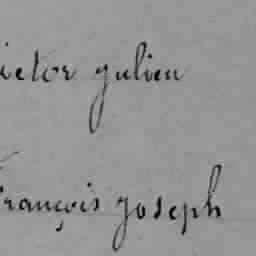 ictor julien
François joseph